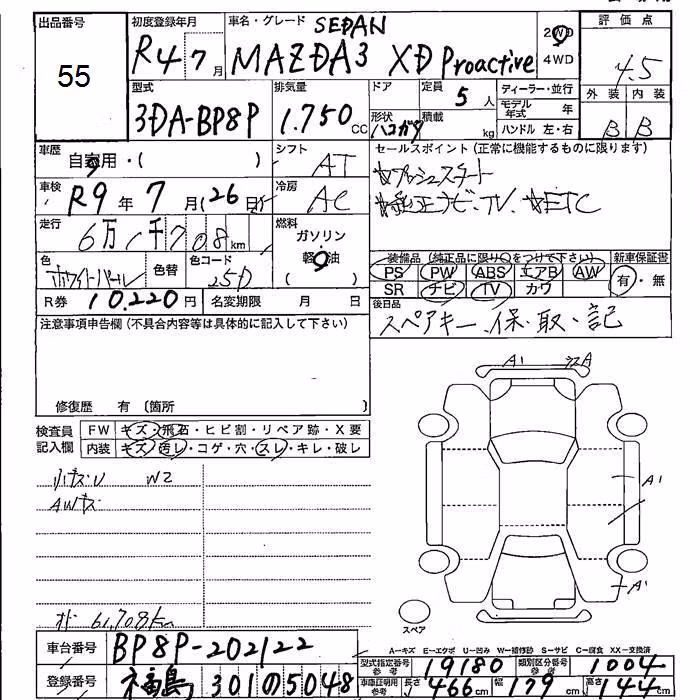 出品番号 55
初度登録年月 R4 7月
車名・グレード SEDAN MAZDA3 XD Proactive
2WD 4WD
評価点 4.5
外装 B 内装 B
型式 3DA-BP8P
排気量 1.750 CC
ドア
定員 5人
形状 ハコガタ
積載 kg
ディーラー・並行
モデル年式 年
ハンドル 左・右
車歴 自家用・( )
シフト AT
セールスポイント (正常に機能するものに限ります)
☆プッシュスタート
☆純正ナビ・TV、☆ETC
車検 R9年7月(26日)
冷房 AC
走行 6万1千708km
燃料 ガソリン・軽油 ( )
色 ホワイトパール
色替
色コード 25D
装備品 (純正品に限り○をつけて下さい)
PS PW ABS エアB AW
SR ナビ TV カワ
新車保証書 有・無
R券 10.220円
名変期限 月 日
後日品
スペアキー、保、取、記
注意事項申告欄 (不具合内容等は具体的に記入して下さい)
修復歴 有 〔箇所 〕
検査員記入欄
FW キズ・飛石・ヒビ割・リペア跡・X要
内装 キズ・汚レ・コゲ・穴・スレ・キレ・破レ
小キズU W2
AWキズ
オド 61,708km
A1
A
A1
A1
スペア
A-キズ E-エクボ U-凹み W-補修跡 S-サビ C-腐食 XX-交換済
車台番号 BP8P-202122
登録番号 福島 301 の 5048
型式指定番号 参考 19180
類別区分番号 参考 1004
車庫証明用 参考 長さ 466cm 幅 179cm 高さ 144cm